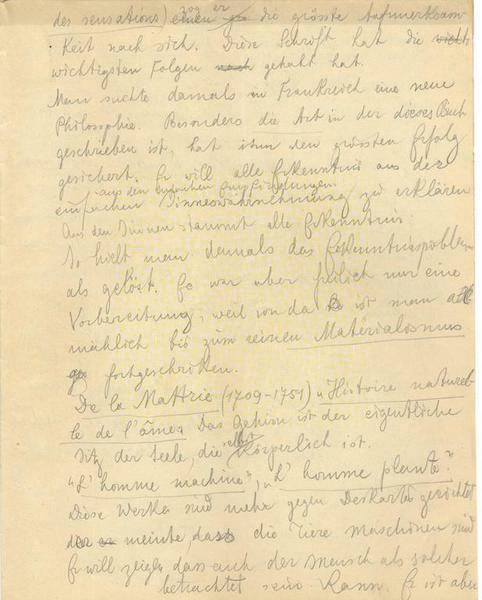 des sensations) einen zog er die grösste Aufmerksam
keit nach sich. Diese Schrift hat die wicht
wichtigsten Folgen nach gehabt hat.
Man suchte damals in Frankreich eine neue
Philosophie. Besonders die Art in der dieses Buch
geschrieben ist, hat ihm den grössten Erfolg
gesichert. Er will alle Erkenntnis aus der
aus den einfachen Empfindungen
einfachen Sinneswahrnehmung zu erklären
Aus den Sinnen stammt alle Erkenntnis.
So hielt man damals das Erkenntnisproblem
als gelöst. Es war aber freilich nur eine
Vorbereitung, weil von da ist man all
mählich bis zum reinen Materialismus
fortgeschritten.
De la Mattrie (1709-1751) "Histoire naturel-
le de l'âme" Das Gehirn ist der eigentliche
Sitz der Seele, die selbst körperlich ist.
"L'homme machine", "L'homme plante".
Diese Werke sind mehr gegen Deskartes gerichtet
der meinte, dass die Tiere Maschinen sind
Er will zeigen dass auch der Mensch als solcher
betrachtet sein kann. Er ist aber